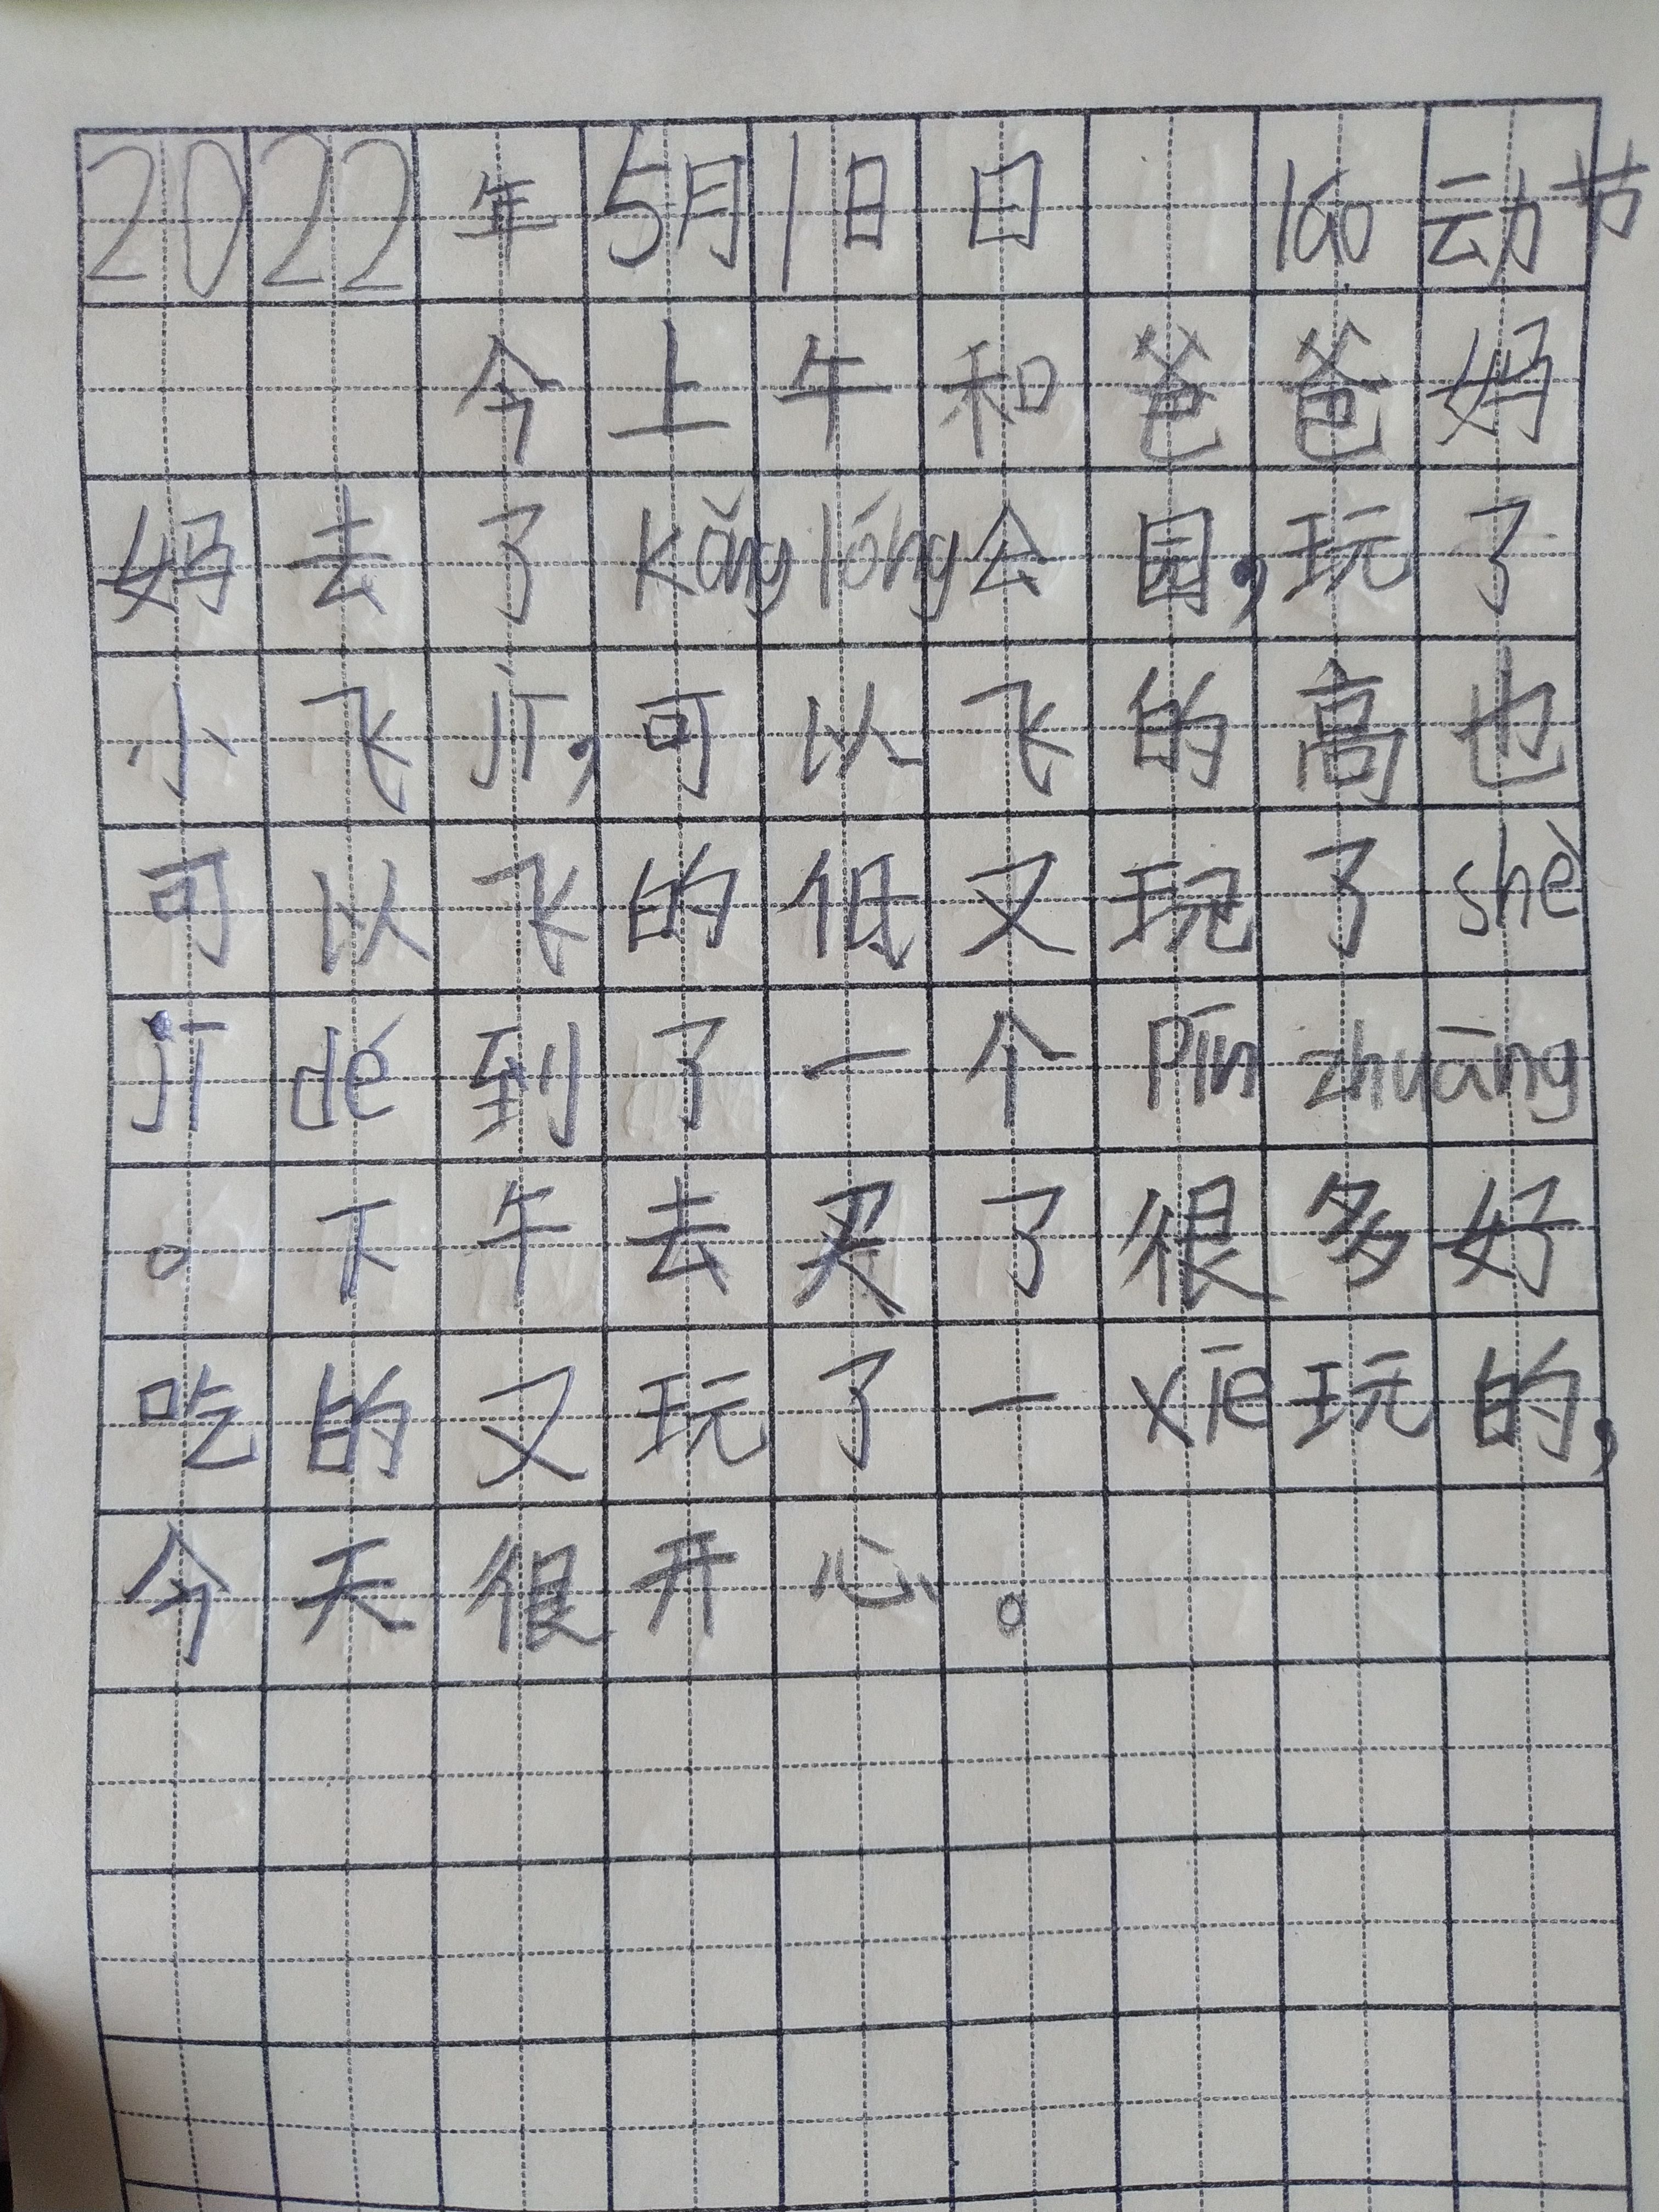 2022年5月1日日 láo动节
今上午和爸爸妈
妈去了kǒnglóng公园,玩了
小飞jī,可以飞的高也
可以飞的低又玩了shè
jī dé到了一个Pīn zhuāng
。下午去买了很多好
吃的又玩了一xiē玩的,
今天很开心。